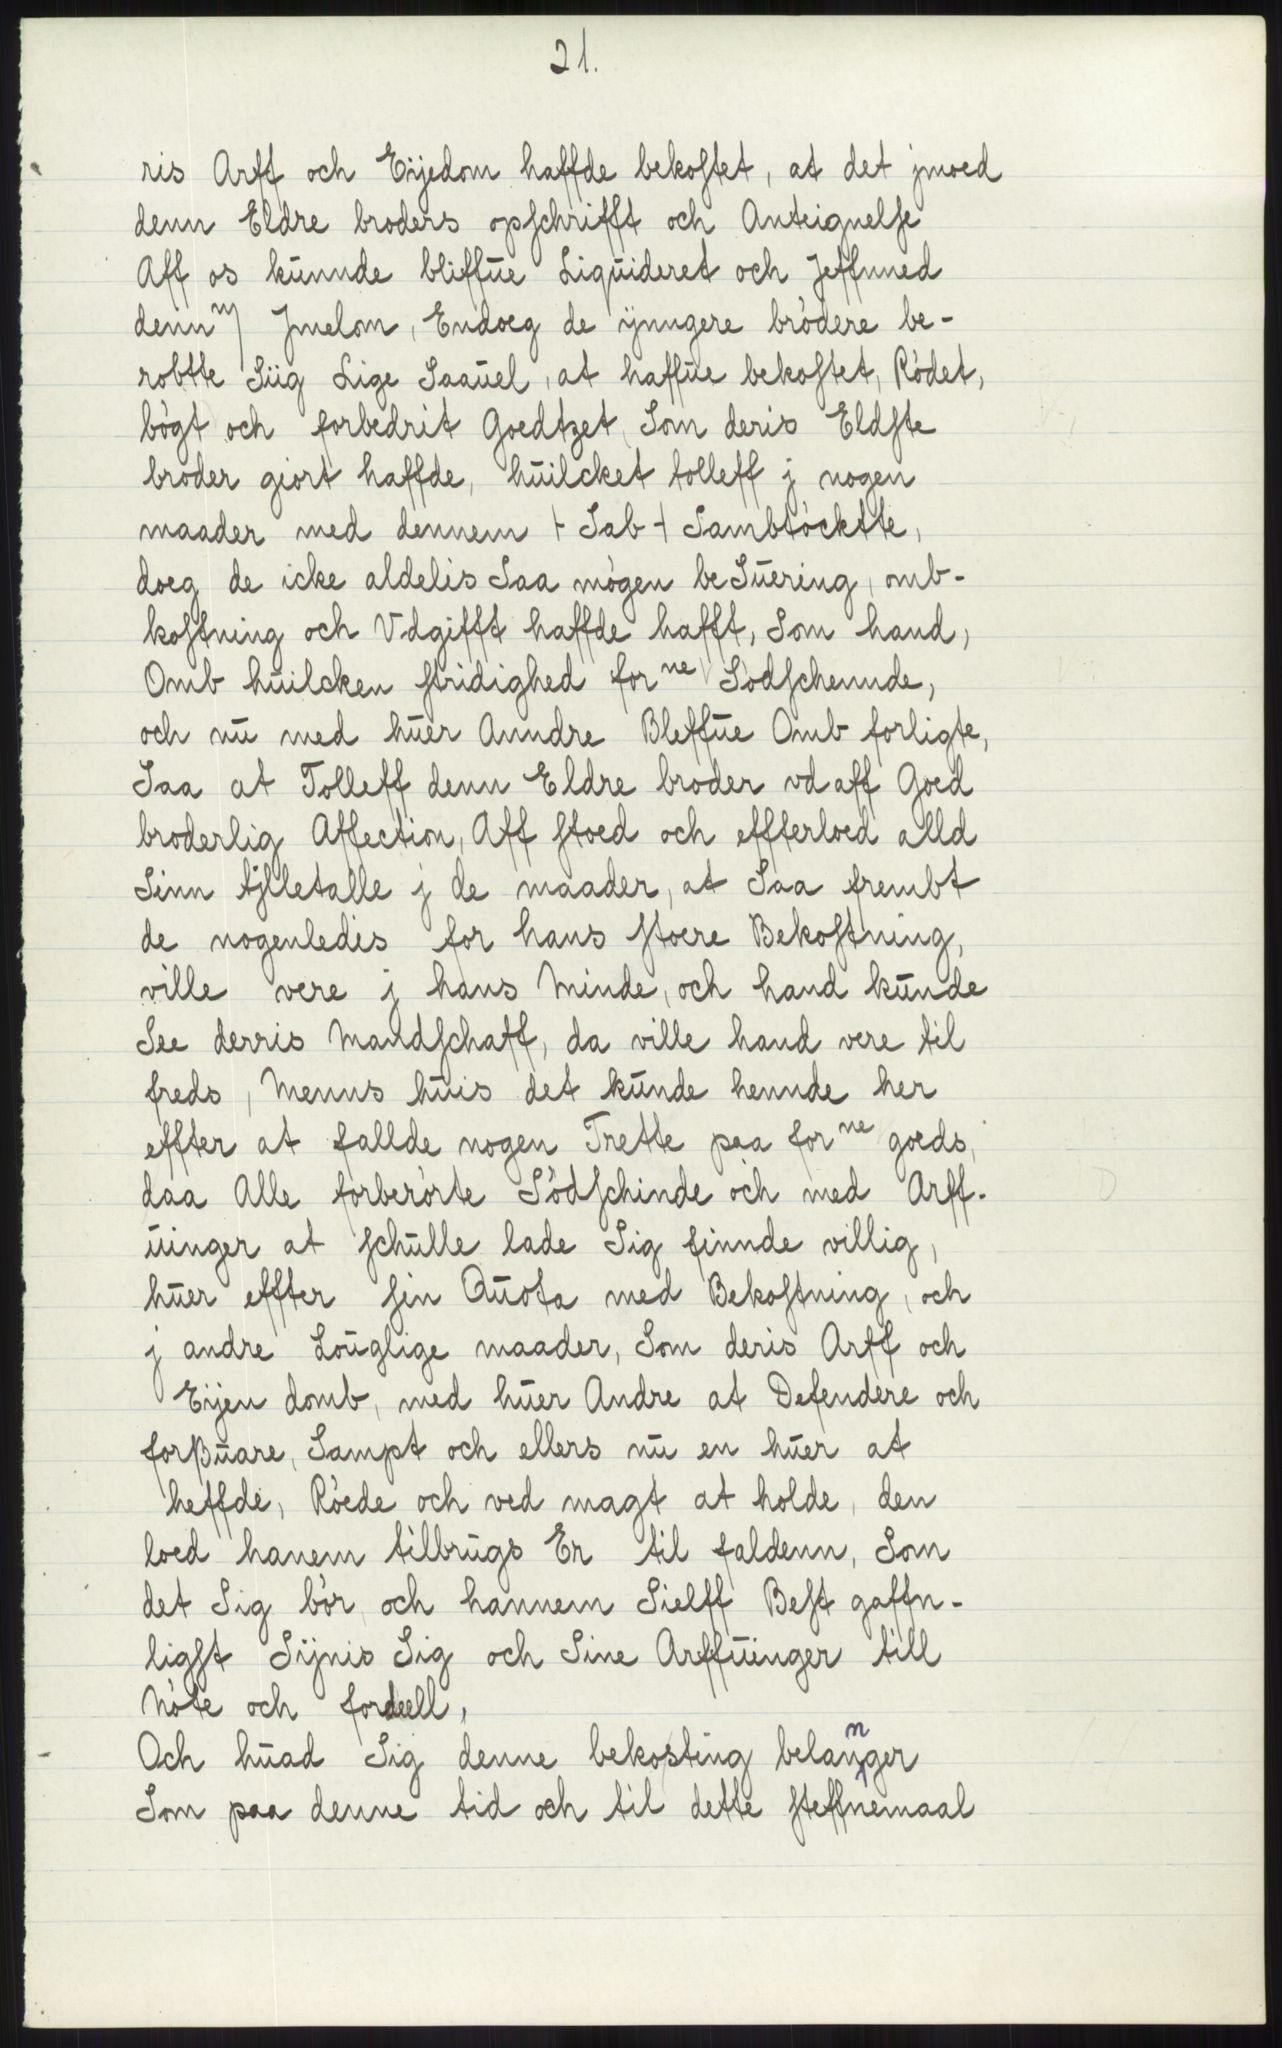 21.
ris Arff och Eijedom haffde bekostet, at det jmoed
denn Eldre broders opschrifft och Anteignelse
Aff os kunnde bliffue Liquideret och Jeffnned
denn m/ Jmelom, Endoeg de ÿnngere brødere be-
robtte Siig Lige Saauel, at haffue bekostet, Rødet,
bøgt och forbedrit Goedtzet Som deris Eldste
broder giort haffde, huilcket tolleff j nogen
maader med dennem + Sab + Sambtøcktte,
doeg de icke aldelis Saa møgen beSuering, omb-
kostning och Vdgifft haffde hafft, Som hand,
Omb huilcken stridighed for ne Sødschennde,
och nu med huer Anndre Bleffue Omb forligte,
Saa at Tolleff denn Eldre broder vd aff Goed
broderlig Affection, Aff stoed och effterloed alld
Sinn tjlletalle j de maader, at Saa frembt
de nogenledis for hans stoere Bekostning,
ville vere j hans Minde, och hand kunde
See derris Mandschaff, da ville hand vere til
freds, Menns huis det kunde hennde her
effter at fallde nogen Trette paa for ne goeds,
daa Alle forberørte Sødschinde och med Arff-
uinger at schulle lade Sig finnde villig,
huer effter sin Quota med Bekostning, och
j andre Louglige maader, Som deris Arff och
Eijen domb, med huer Andre at Defendere och
forßuare, Sampt och ellers nu en huer at
heffde, Røede och ved magt at holde, den
loed hanem tilbrugs Er til faldenn, Som
det Sig bør och hannem Sielff Best gaffn-
ligst Sijnis Sig och Sine Arffuinger till
Nøte och fordeell,
Och huad Sig denne bekosting belannger
Som paa denne tid och til dette steffnemaal